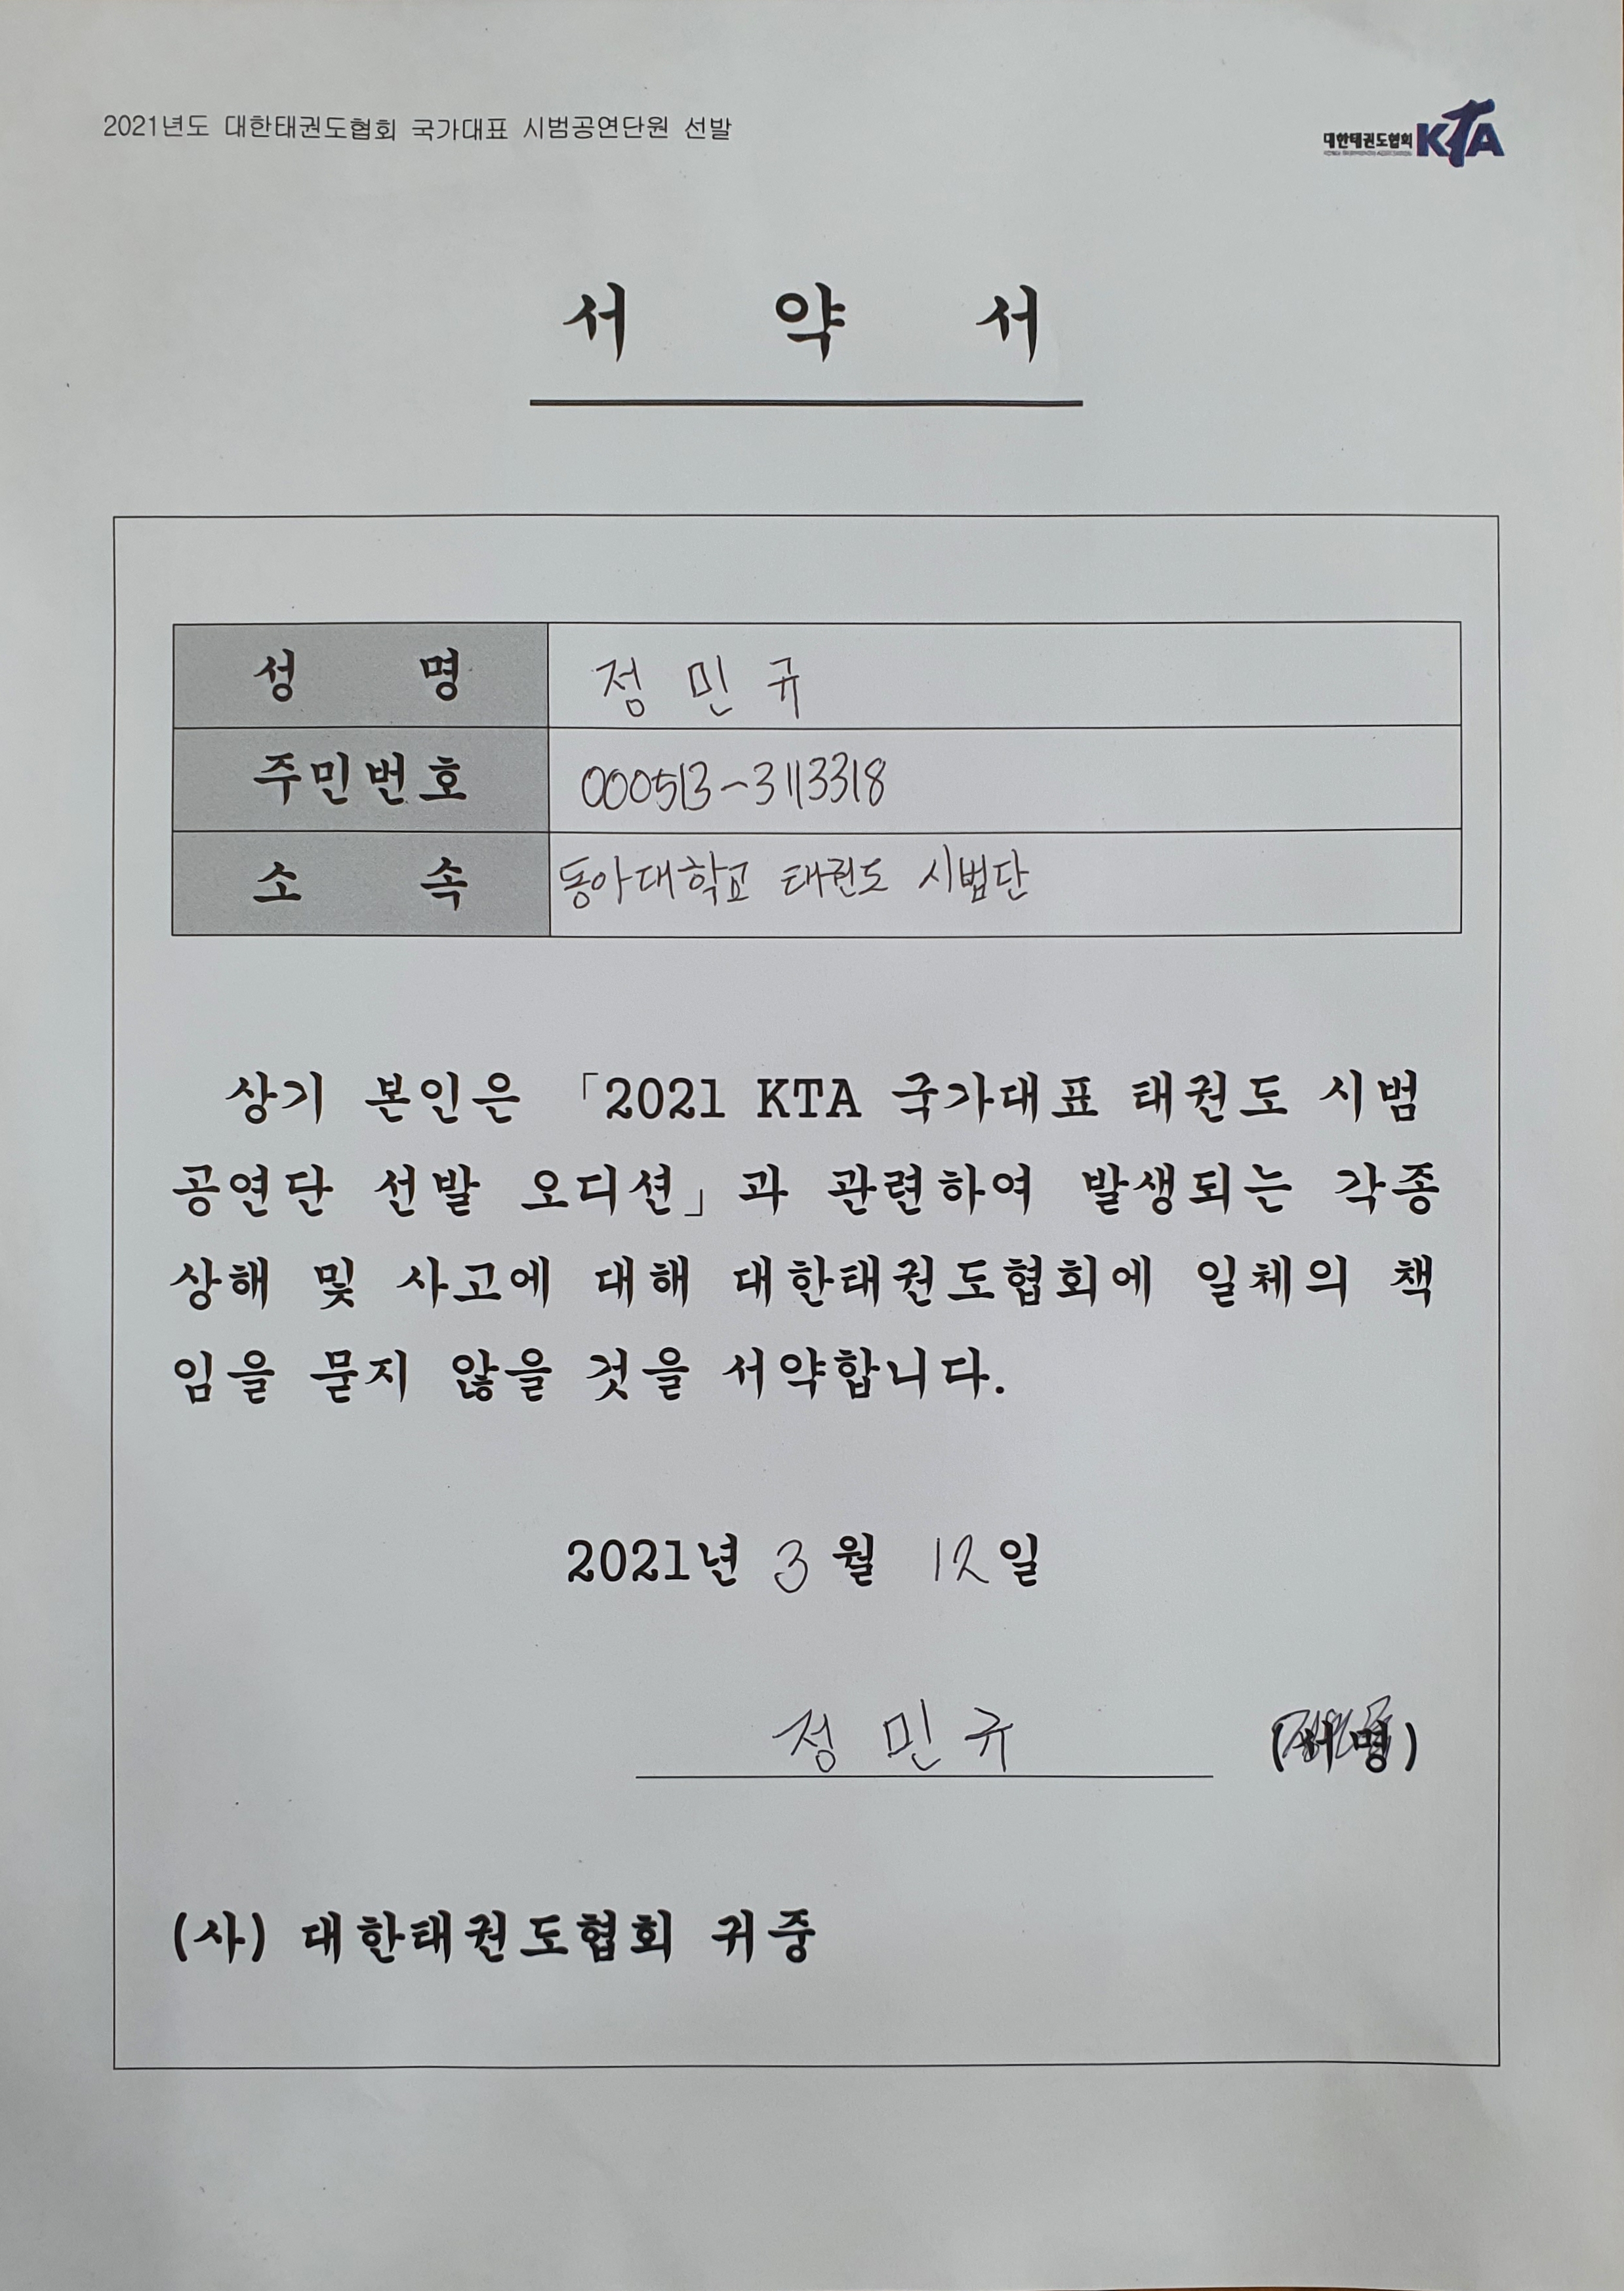 2021년도 대한태권도협회 국가대표 시범공연단원 선발
대한태권도협회 KTA
서 약 서
성 명 정 민 규
주민번호 000513-3113318
소 속 동아대학교 태권도 시범단
상기 본인은 「2021 KTA 국가대표 태권도 시범
공연단 선발 오디션」과 관련하여 발생되는 각종
상해 및 사고에 대해 대한태권도협회에 일체의 책
임을 묻지 않을 것을 서약합니다.
2021년 3월 12일
정 민 규 (서명)
(사) 대한태권도협회 귀중